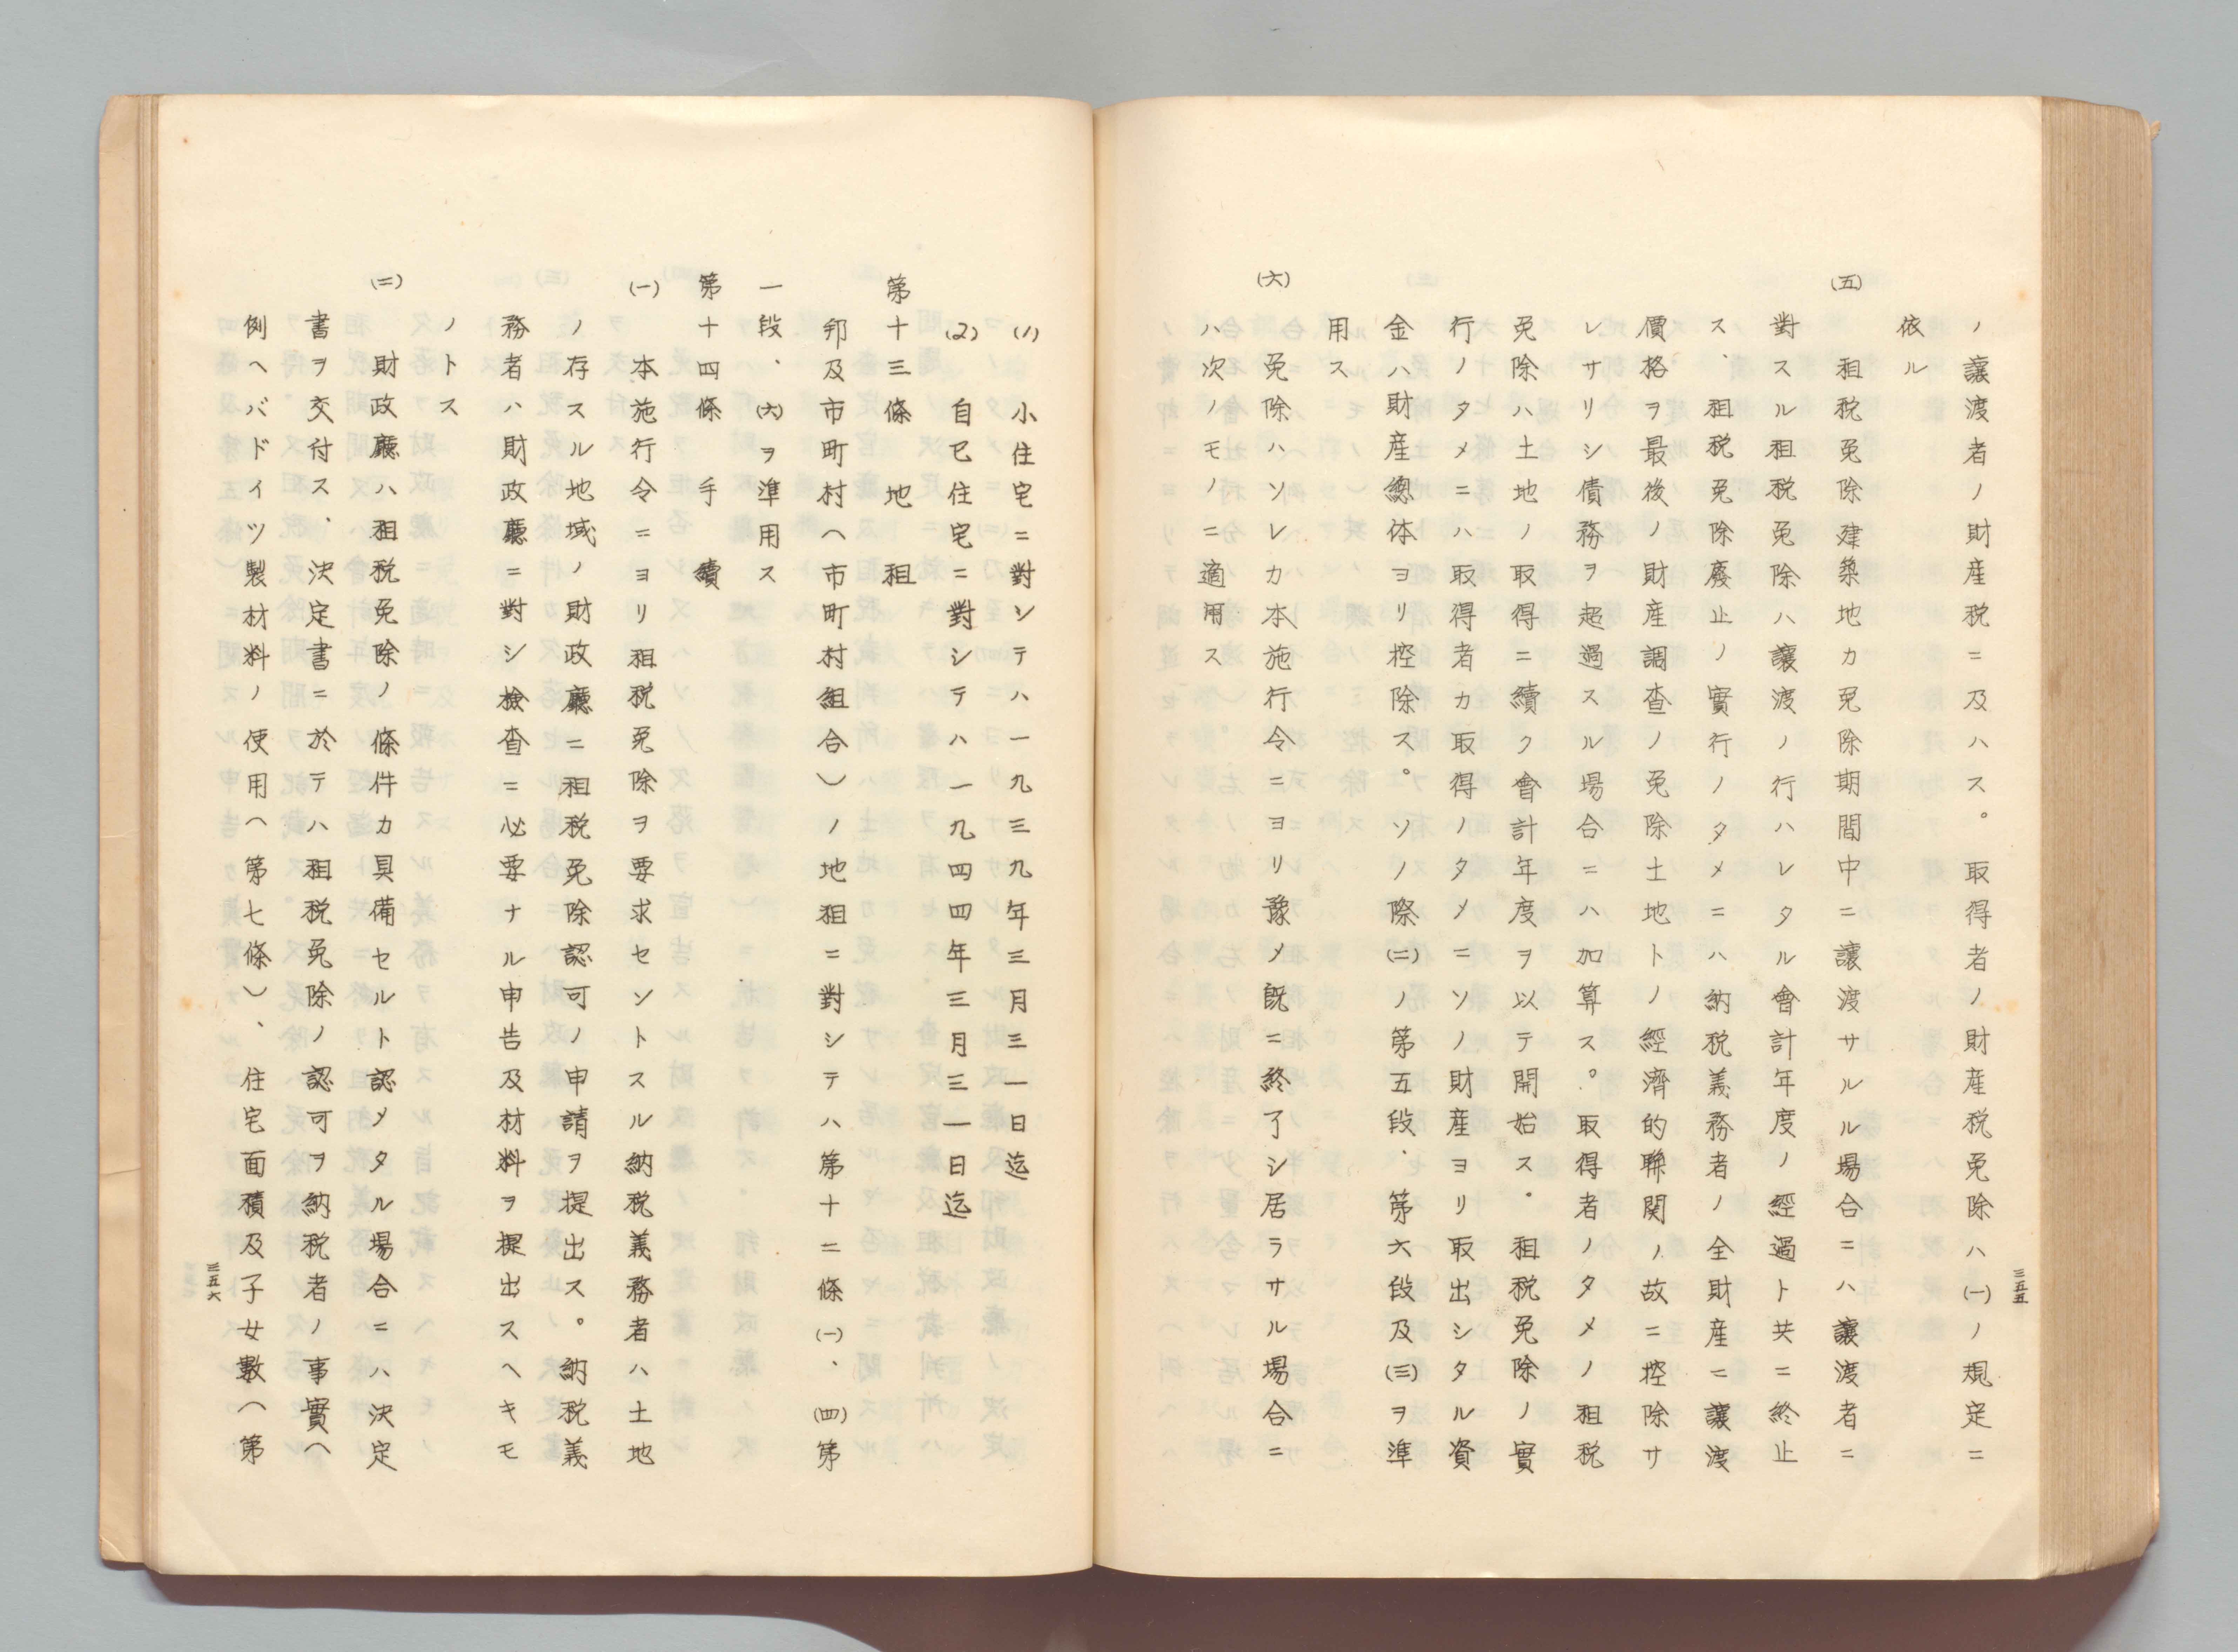 ノ讓渡者ノ財産税ニ及ハス。取得者ノ財産税免除ハ(一)ノ規定ニ
依ル
(五)租税免除建築地カ免除期間中ニ讓渡サルル場合ニハ讓渡者ニ
對スル租税免除ハ讓渡ノ行ハレタル會計年度ノ經過ト共ニ終止
ス、租税免除廢止ノ實行ノタメニハ納税義務者ノ全財産ニ讓渡
價格ヲ最後ノ財産調査ノ免除土地トノ經濟的聯関ノ故ニ控除サ
レサリシ債務ヲ超過スル場合ニハ加算ス。取得者ノタメノ租税
免除ハ土地ノ取得ニ續ク會計年度ヲ以テ開始ス。租税免除ノ實
行ノタメニハ取得者カ取得ノタメニソノ財産ヨリ取出シタル資
金ハ財産總体ヨリ控除ス。ソノ際(二)ノ第五段、第六段及(三)ヲ準
用ス
(六)免除ハソレカ本施行令ニヨリ豫メ既ニ終了シ居ラサル場合ニ
ハ次ノモノニ適用ス
三五五
(1)小住宅ニ對シテハ一九三九年三月三一日迄
(2)自己住宅ニ對シテハ一九四四年三月三一日迄
第十三條 地租
邦及市町村(市町村組合)ノ地租ニ對シテハ第十二條(一)、(四)第
一段、(六)ヲ準用ス
第十四條 手續
(一)本施行令ニヨリ租税免除ヲ要求セントスル納税義務者ハ土地
ノ存スル地域ノ財政廳ニ租税免除認可ノ申請ヲ提出ス。納税義
務者ハ財政廳ニ對シ檢査ニ必要ナル申告及材料ヲ提出スヘキモ
ノトス
(二)財政廳ハ租税免除ノ條件カ具備セルト認メタル場合ニハ決定
書ヲ交付ス、決定書ニ於テハ租税免除ノ認可ヲ納税者ノ事實(
例ヘバドイツ製材料ノ使用(第七條)、住宅面積及子女數(第
三五六